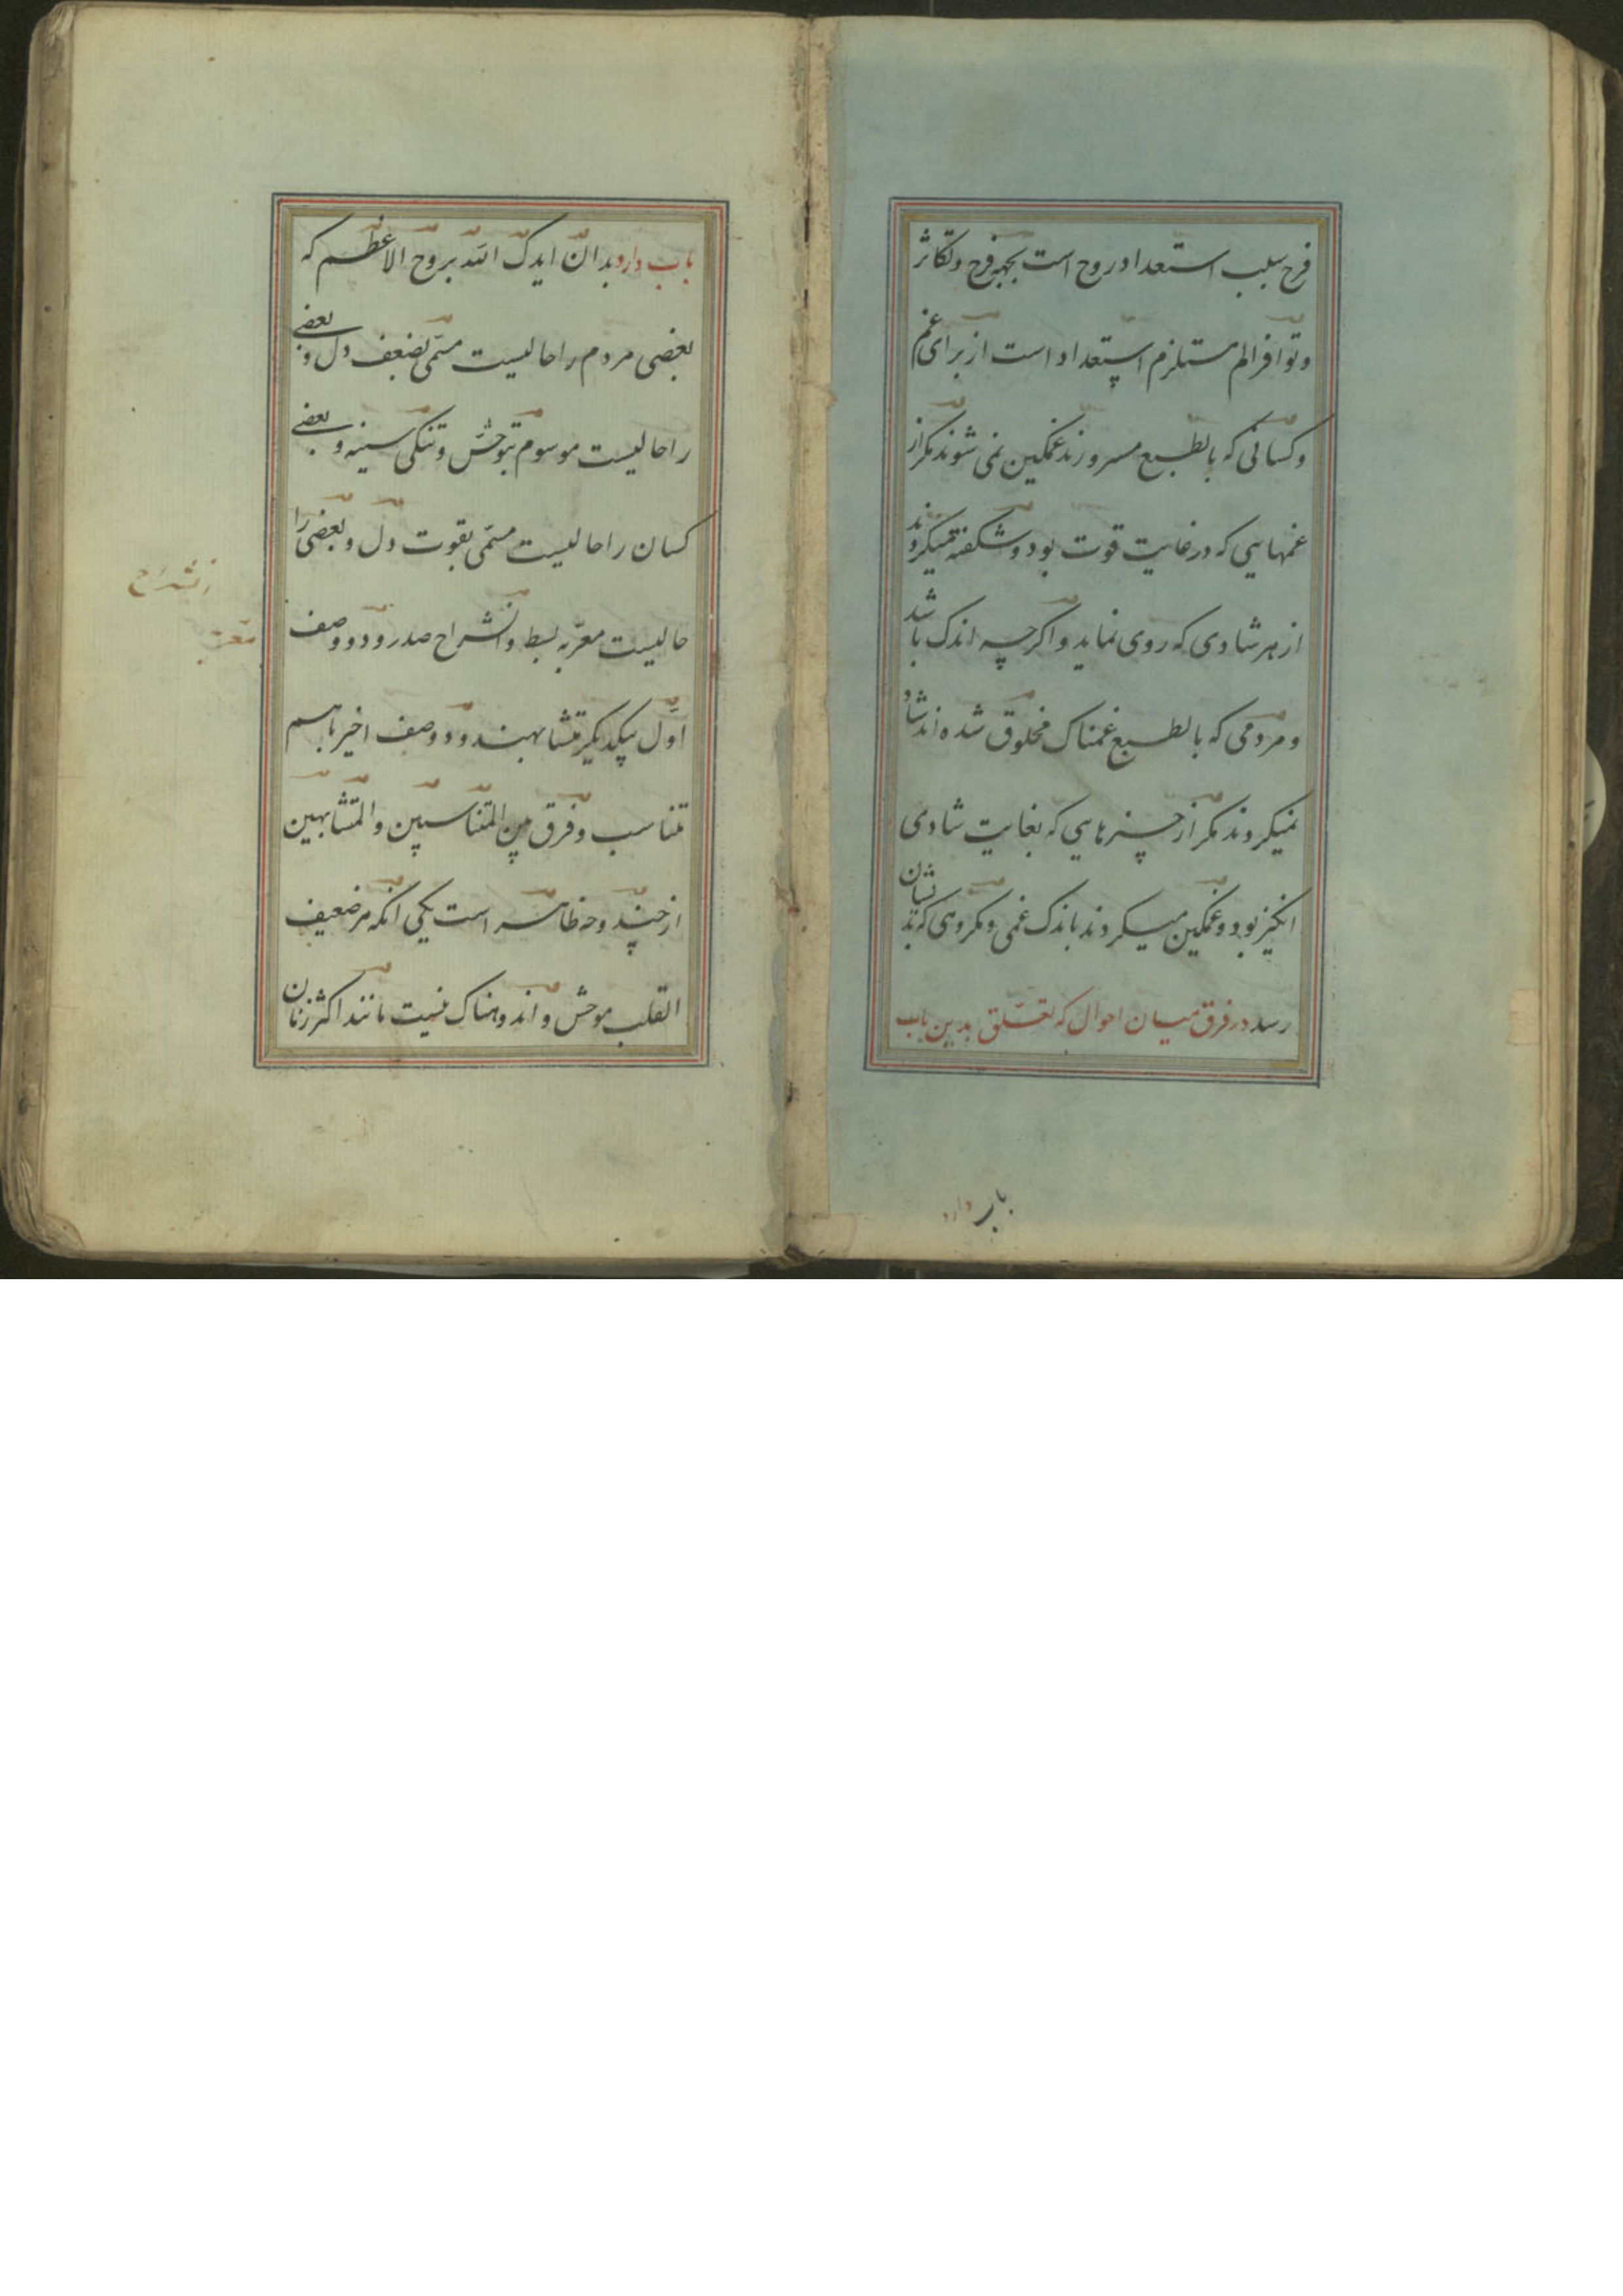 فرح سبب استعداد روح است بجهة فرح و تکاثر
و توافر الم مستلزم استعداد است از برای غم
و کسانی که بالطبع مسرورند غمکین نمی شوند مکر از
غمهایی که در غایت قوت بود و شکفته میکروند
از هر شادی که روی نماید و اکرچه اندک باشد
و مردمی که بالطبع غمناک مخلوق شده اند شاد
نمیکروند مکر از چیزهایی که بغایت شادی
انکیز بود و غمکین میکردند باندک غمی و مکروهی که بدیشان
رسد در فرق میان احوال که تعلق بدین باب
باب دارد
باب دارد بدان ایدک الله بروح الاعظم که
بعضی مردم را حالیست مسمّی بضعف دل و بعضی
را حالیست موسوم بتوحّش و تنکی سینه و بعضی
کسان را حالیست مسمّی بقوت دل و بعضی را
حالیست معبّر به بسط و انشراح صدر و دو وصف
اوّل بیکدیکر متشابهند و دو وصف اخیر باهم
متناسب و فرق بین المتناسبین و المتشابهین
از چند وجه ظاهر است یکی انکه هر ضعیف
القلب موحش و اندوهناک نیست مانند اکثر زنان
انشراح
معبر